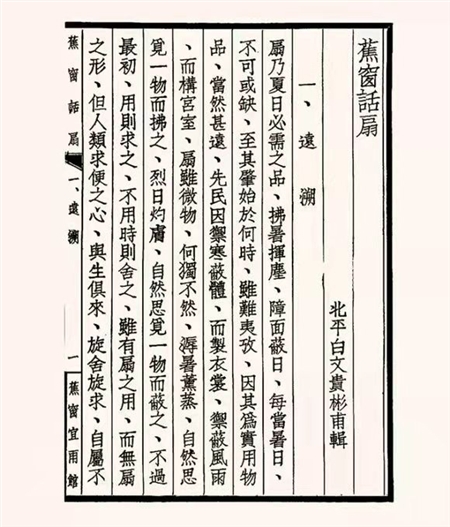 蕉窗話扇
北平白文貴彬甫輯
一、遠溯
扇乃夏日必需之品、拂暑揮塵、障面蔽日、每當暑日、
不可或缺、至其肇始於何時、雖難夷攷、因其爲實用物
品、當然甚遠、先民因禦寒蔽體、而製衣裳、禦蔽風雨
、而構宮室、扇雖微物、何獨不然、溽暑薰蒸、自然思
覓一物而拂之、烈日灼膚、自然思覓一物而蔽之、不過
最初、用則求之、不用時則舍之、雖有扇之用、而無扇
之形、但人類求便之心、與生俱來、旋舍旋求、自屬不
蕉窗話扇 一、遠溯 一 蕉窗宜雨館